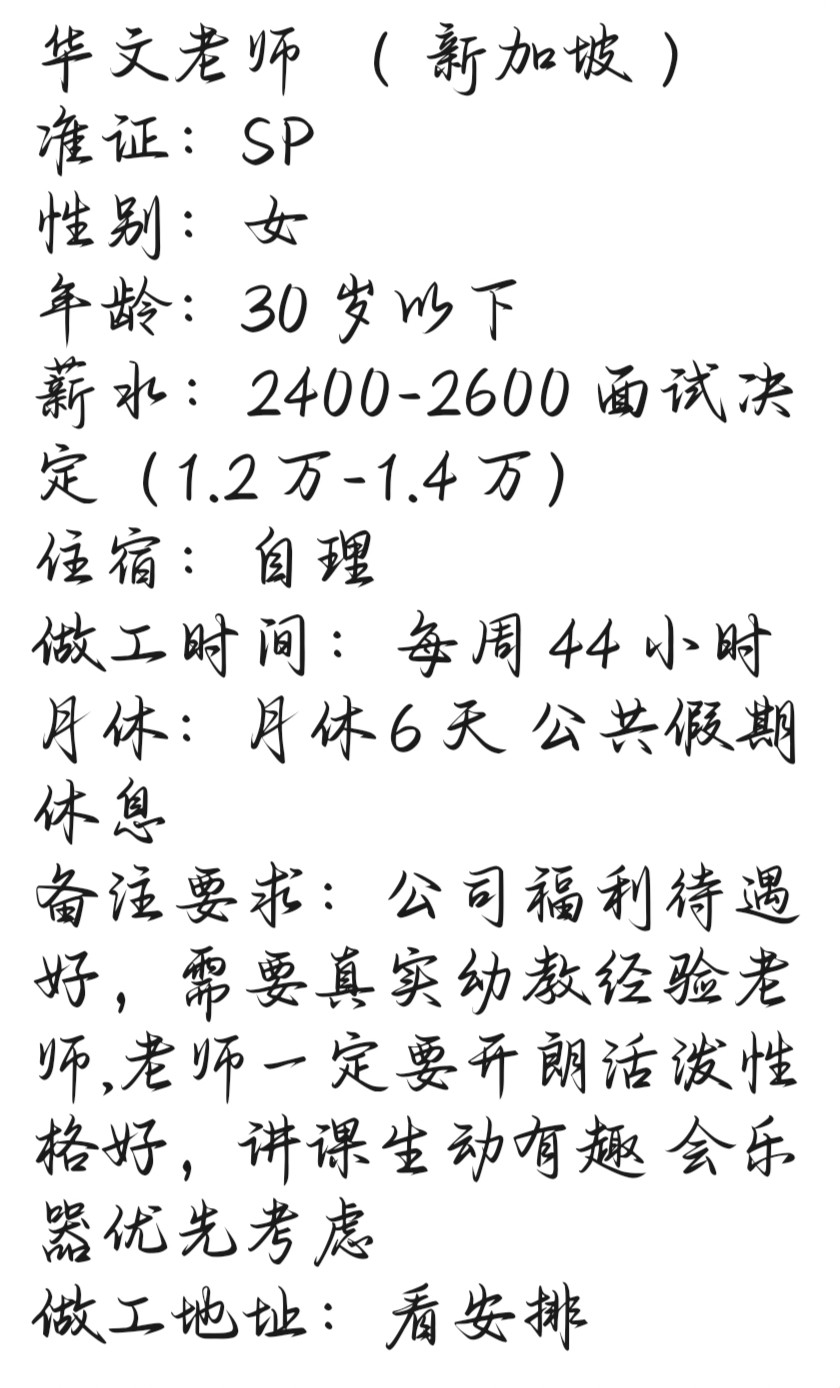 华文老师 （新加坡）
准证：SP
性别：女
年龄：30岁以下
薪水：2400-2600 面试决
定（1.2万-1.4万）
住宿：自理
做工时间：每周44小时
月休：月休6天 公共假期
休息
备注要求：公司福利待遇
好，需要真实幼教经验老
师,老师一定要开朗活泼性
格好，讲课生动有趣 会乐
器优先考虑
做工地址：看安排